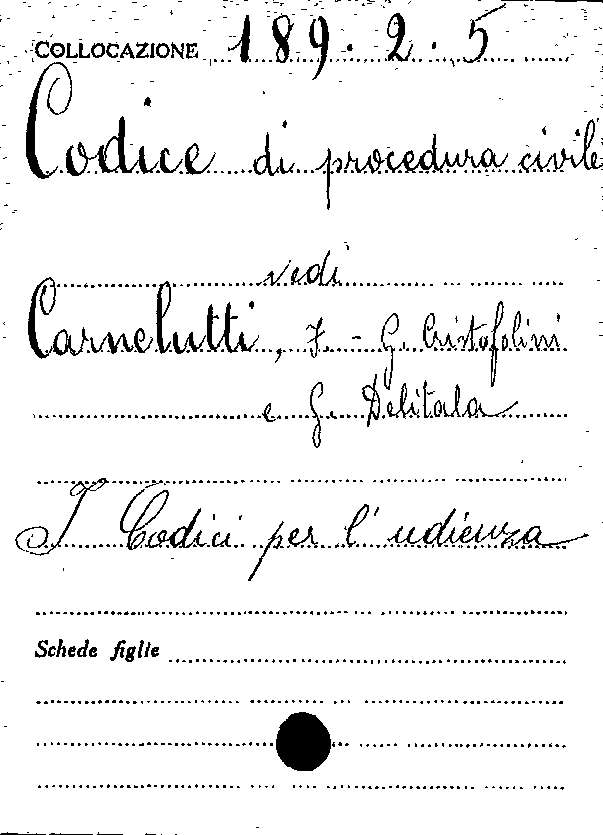 COLLOCAZIONE 189.2.5
Codice di procedura civile
vedi
Carnelutti, F. - G. Cristofolini
e G. Delitala
I Codici per l'udienza
Schede figlie